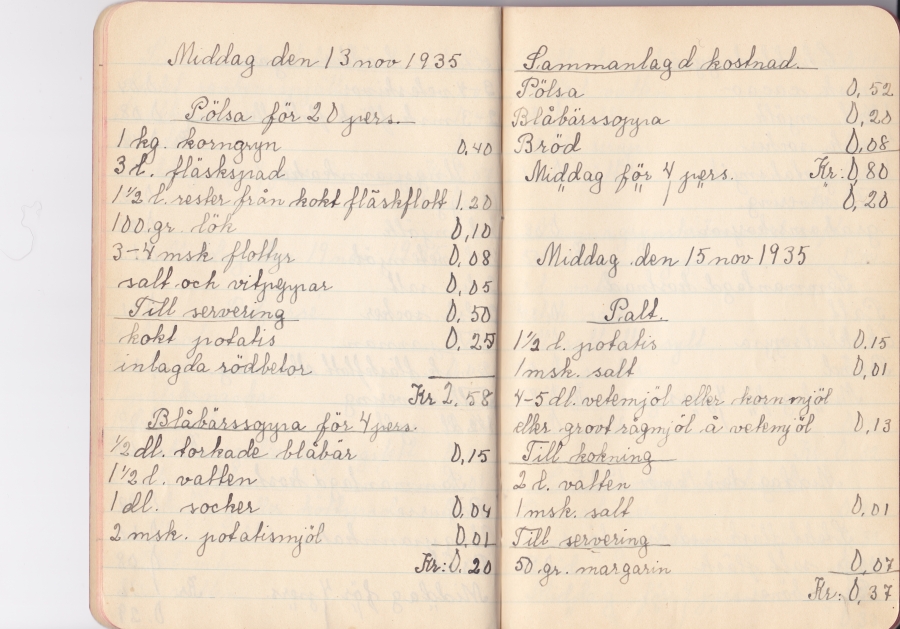 Middag den 13 nov 1935
Pölsa för 20 pers.
1 kg. korngryn 0,40
3 l. fläskspad
1 1/2 l. rester från kokt fläskflott 1.20
100.gr. lök 0,10
3-4 msk flottyr 0,08
salt och vitpeppar 0,05
Till servering 0.50
kokt potatis 0,25
inlagda rödbetor
Kr 2,58
Blåbärssoppa för 4 pers.
1/2 dl. torkade blåbär 0,15
1 1/2 l. vatten
1 dl. socker 0,04
2 msk. potatismjöl 0,01
Kr: 0.20
Sammanlagd kostnad.
Pölsa 0,52
Blåbärssoppa 0,20
Bröd 0,08
Middag för 4 pers. Kr: 0,80
" " " " 0,20
Middag den 15 nov 1935
Palt.
1 1/2 l. potatis 0.15
1 msk. salt 0,01
4-5 dl. vetemjöl eller kornmjöl
eller grovt rågmjöl å vetemjöl 0,13
Till kokning
2 l. vatten
1 msk. salt 0,01
Till servering
50.gr. margarin 0,07
Kr: 0,37